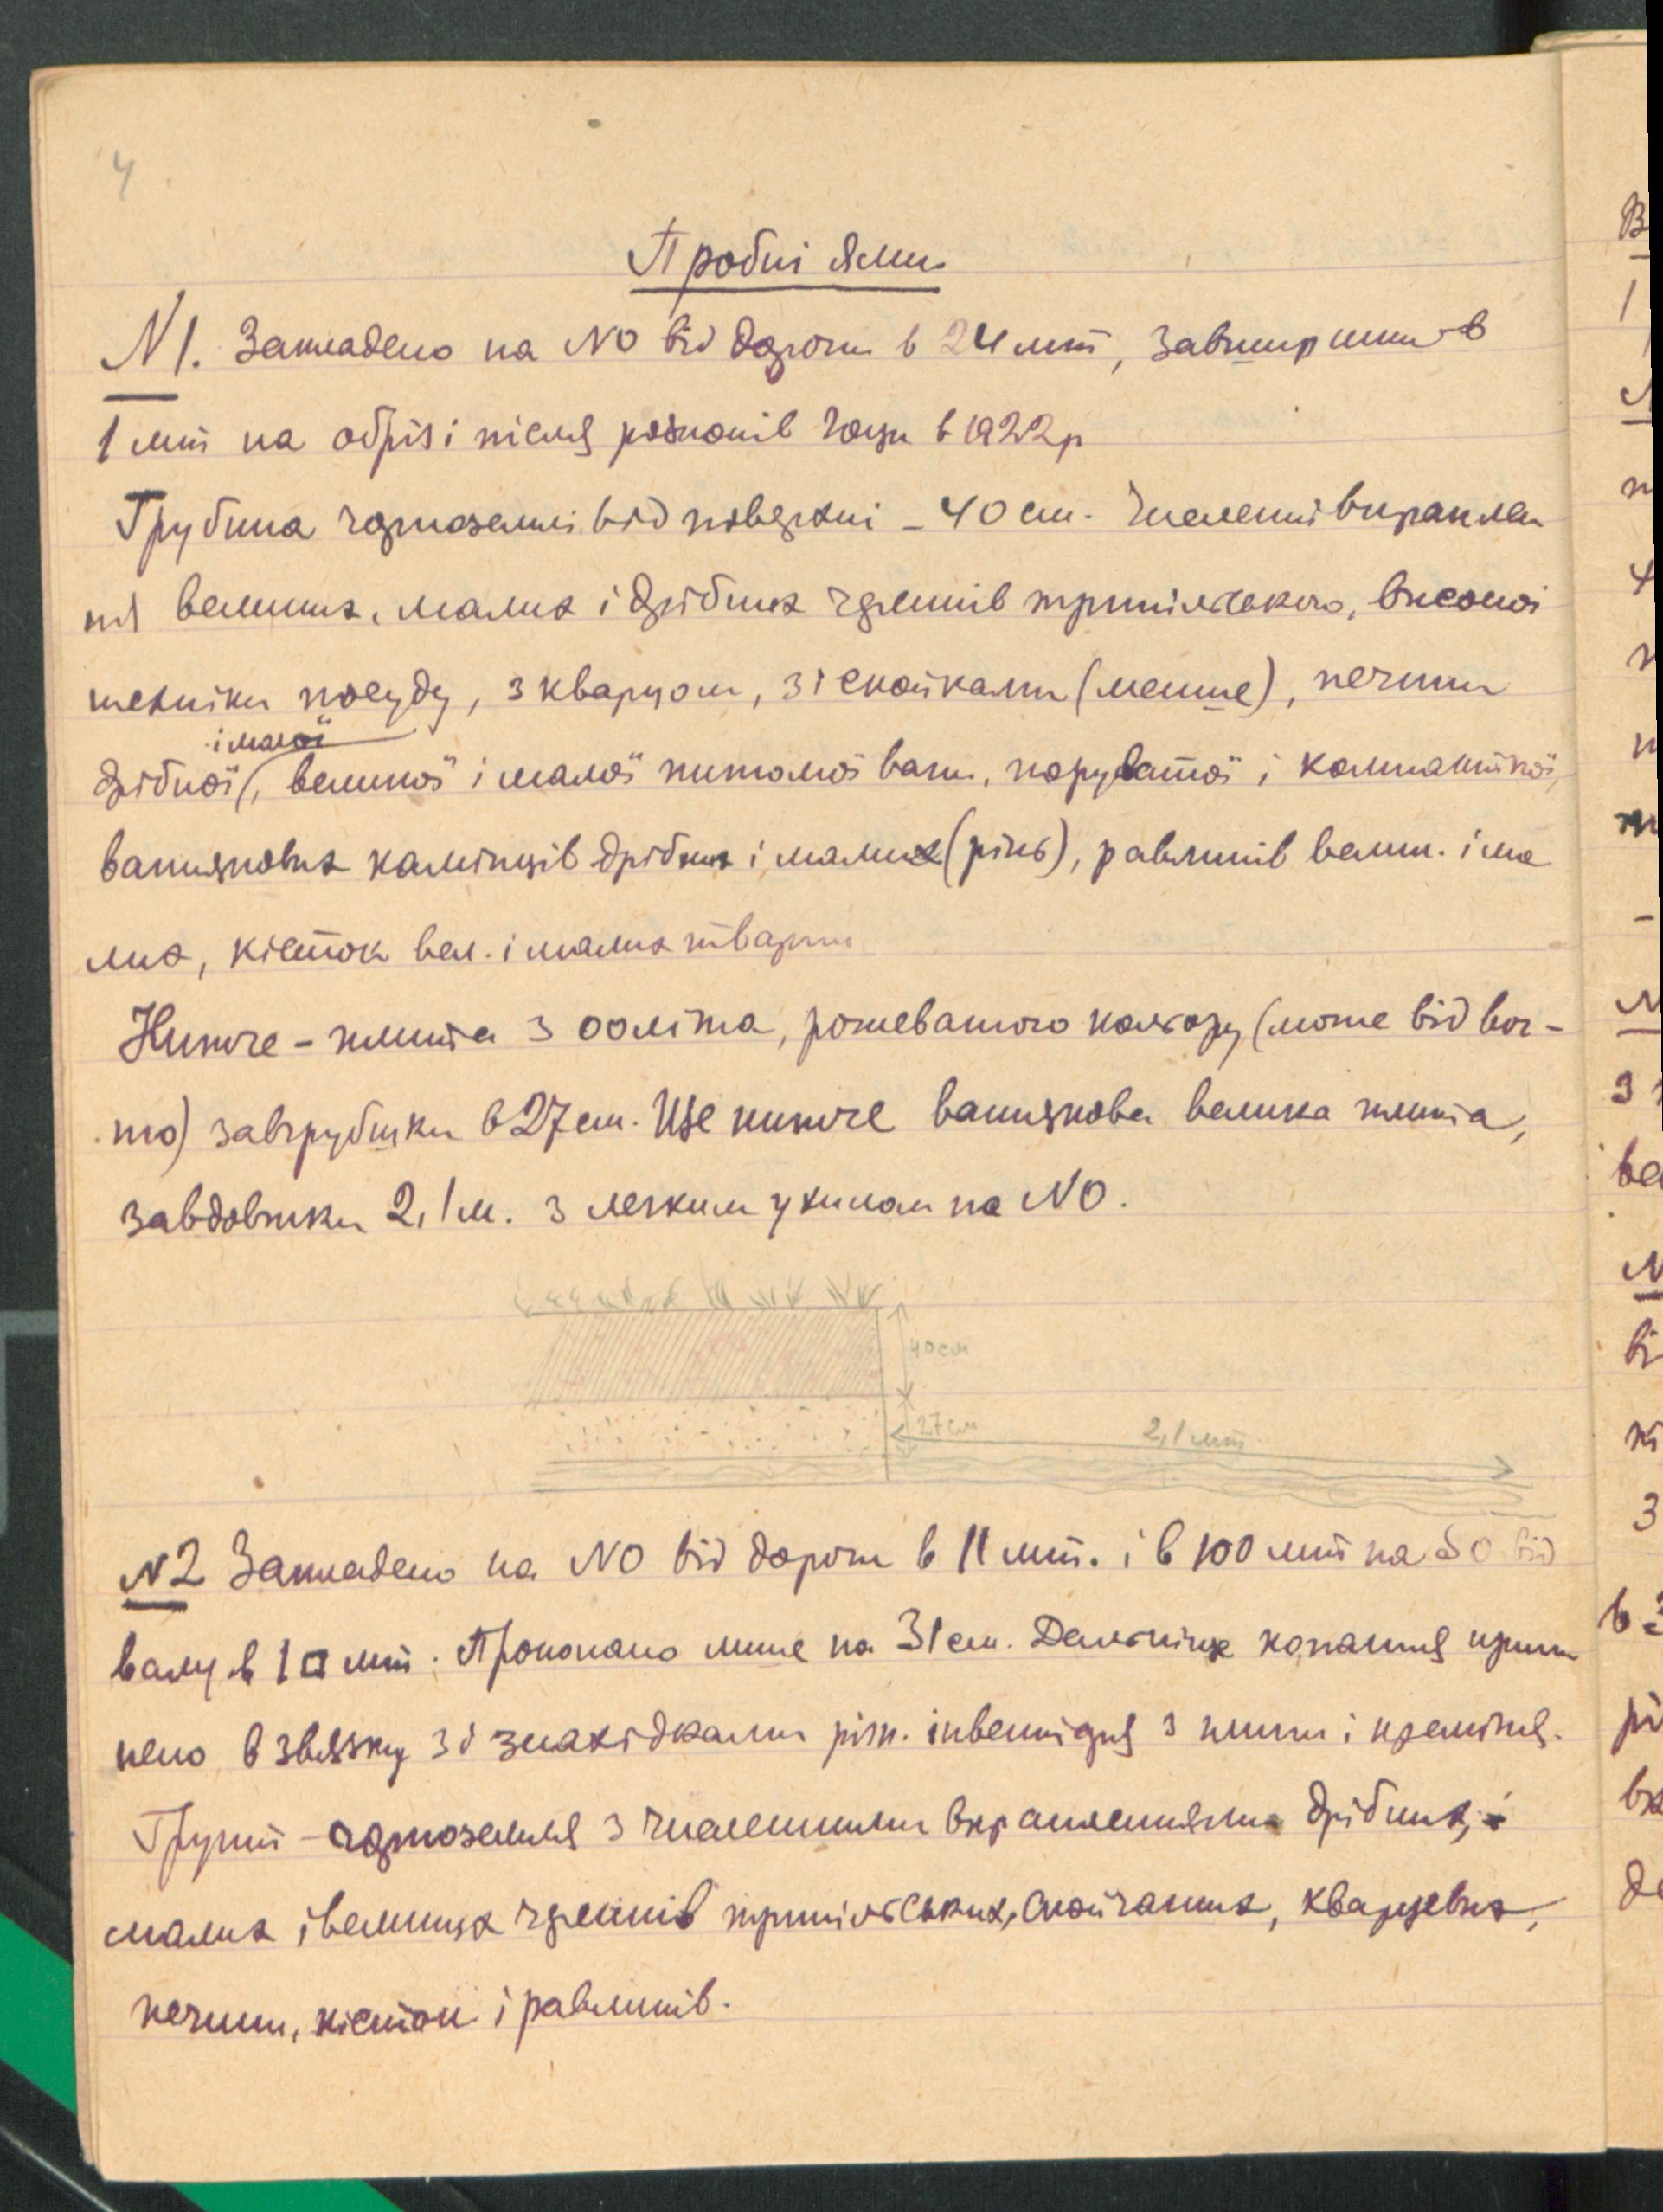 4
Пробні ями
N 1. Закладено на NO від дороги в 24 мт, завширшки в
1 мт на обрізі після розкопів Гоци в 1922 р
Грубина чорноземлі від поверхні – 40 см. Численні вкраплен
ня великих, малих і дрібних черепків трипільського, високої
техніки посуду, з кварцом, зі скойками (менше), печини
і малої
дрібної, великої і малої питомої ваги, поруватої і компактної,
вапнякових камінців дрібних і малих (рінь), равликів велик. і ма
лих, кісток вел. і малих тварин
Нижче – плита з ооліта, рожеватого кольору (може від вог-
ню) завгрубшки в 27 см. Ще нижче вапнякова велика плита,
завдовжки 2,1 м. з легким ухилом на NO.
40 см
27 см
2,1 мт
N 2 Закладено на NO від дороги в 11 мт. і в 100 мт на SO від
валу в 1 □ мт. Прокопано лише на 31 см. Дальніше копання припи
нено в звязку зі знахідками різн. інвентаря з глини і креміння.
Грунт – чорноземля з численними вкрапленнями дрібних,
малих і великих черепків трипільських, скойчаних, кварцевих,
печини, кісток і равликів.